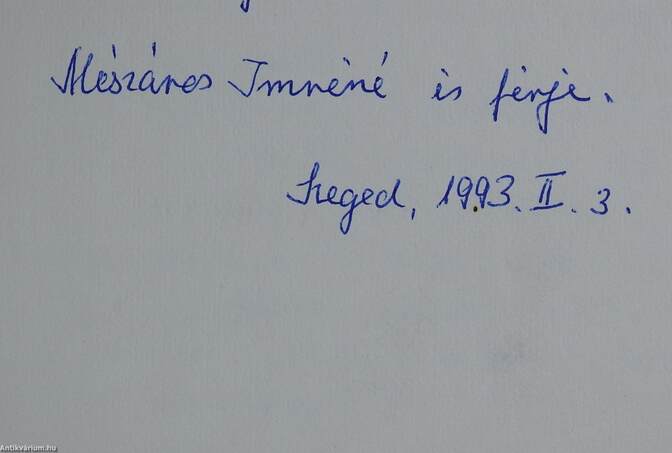 Mészáros Imréné és férje.
Szeged, 1993. II. 3.
Antikvárium.hu